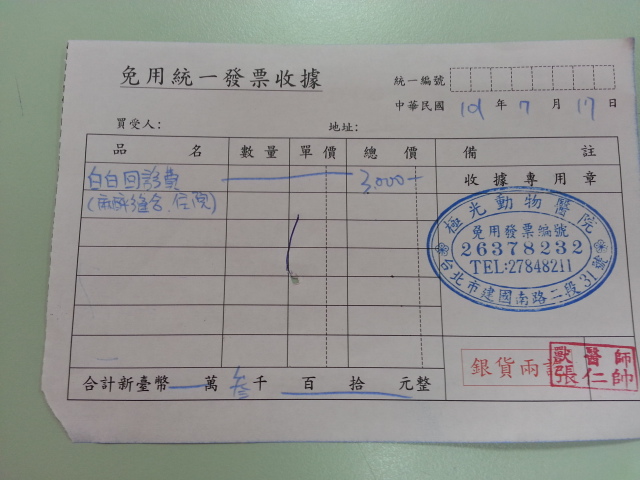 免用統一發票收據
統一編號
中華民國 101 年 7 月 17 日
買受人:
地址:
品名 數量 單價 總價 備註
白白回診費 3,000-
(麻醉縫合、住院)
收據專用章
極光動物醫院
免用發票編號
26378232
TEL:27848211
台北市建國南路二段31號
銀貨兩訖
獸醫師
張仁帥
合計新臺幣 萬 叁 千 百 拾 元整